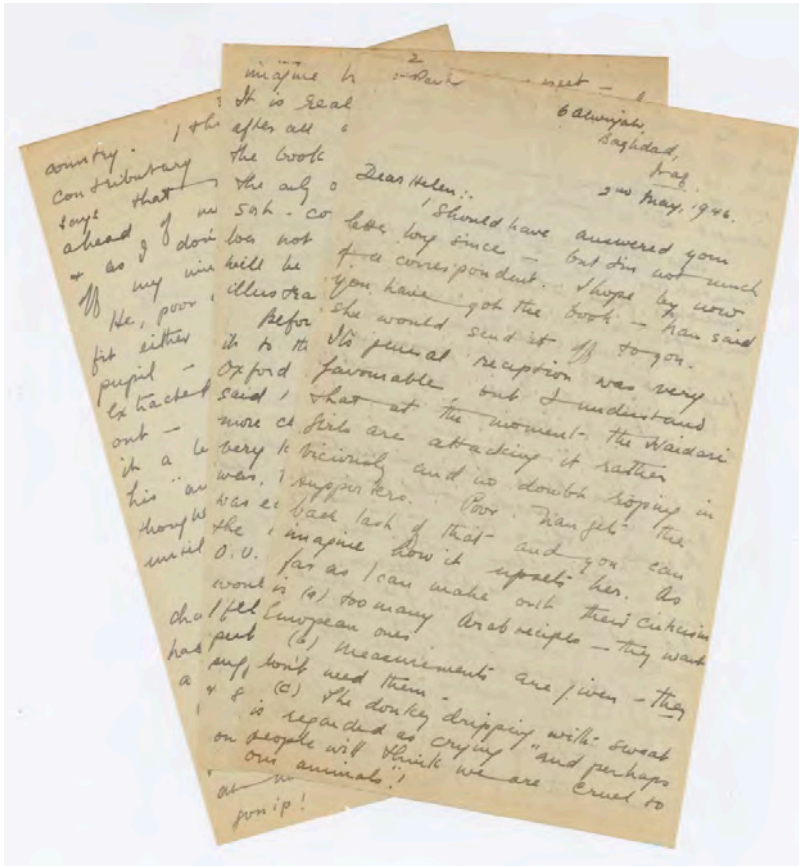 6 Alwiyah,
Baghdad,
Iraq.
2nd May, 1946.
Dear Helen:.
I should have answered your
letter long since – but I'm not much
of a correspondent. I hope by now
you have got the book – Nan said
she would send it off to you.
Its general reception was very
favourable, but I understand
that at the moment the Haidari
girls are attacking it rather
viciously and no doubt roping in
supporters. Poor Nan gets the
back lash of that and you can
imagine how it upsets her. As
far as I can make out their criticism
is (a) too many Arab recipes – they want
European ones
(b) Measurements are given – they
don't need them –
(c) The donkey dripping with sweat
is regarded as crying "and perhaps
people will think we are cruel to
our animals"!
2
imagine
It is real
after all
the book
the only
does not
will be
illustra
Befor
it to th
Oxford
said
more
very
was.
was
the
O.U.
country.
contributary
says that
ahead of
& as I don
off my
He, poor
fit either
pupil –
extracted
out –
in a
his
until
has
a
gossip!